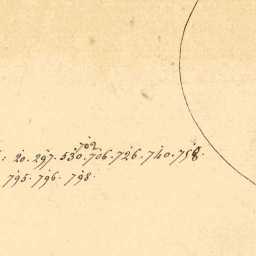 702
: 20. 297. 530. 706. 726. 740. 758.
795. 796. 798.